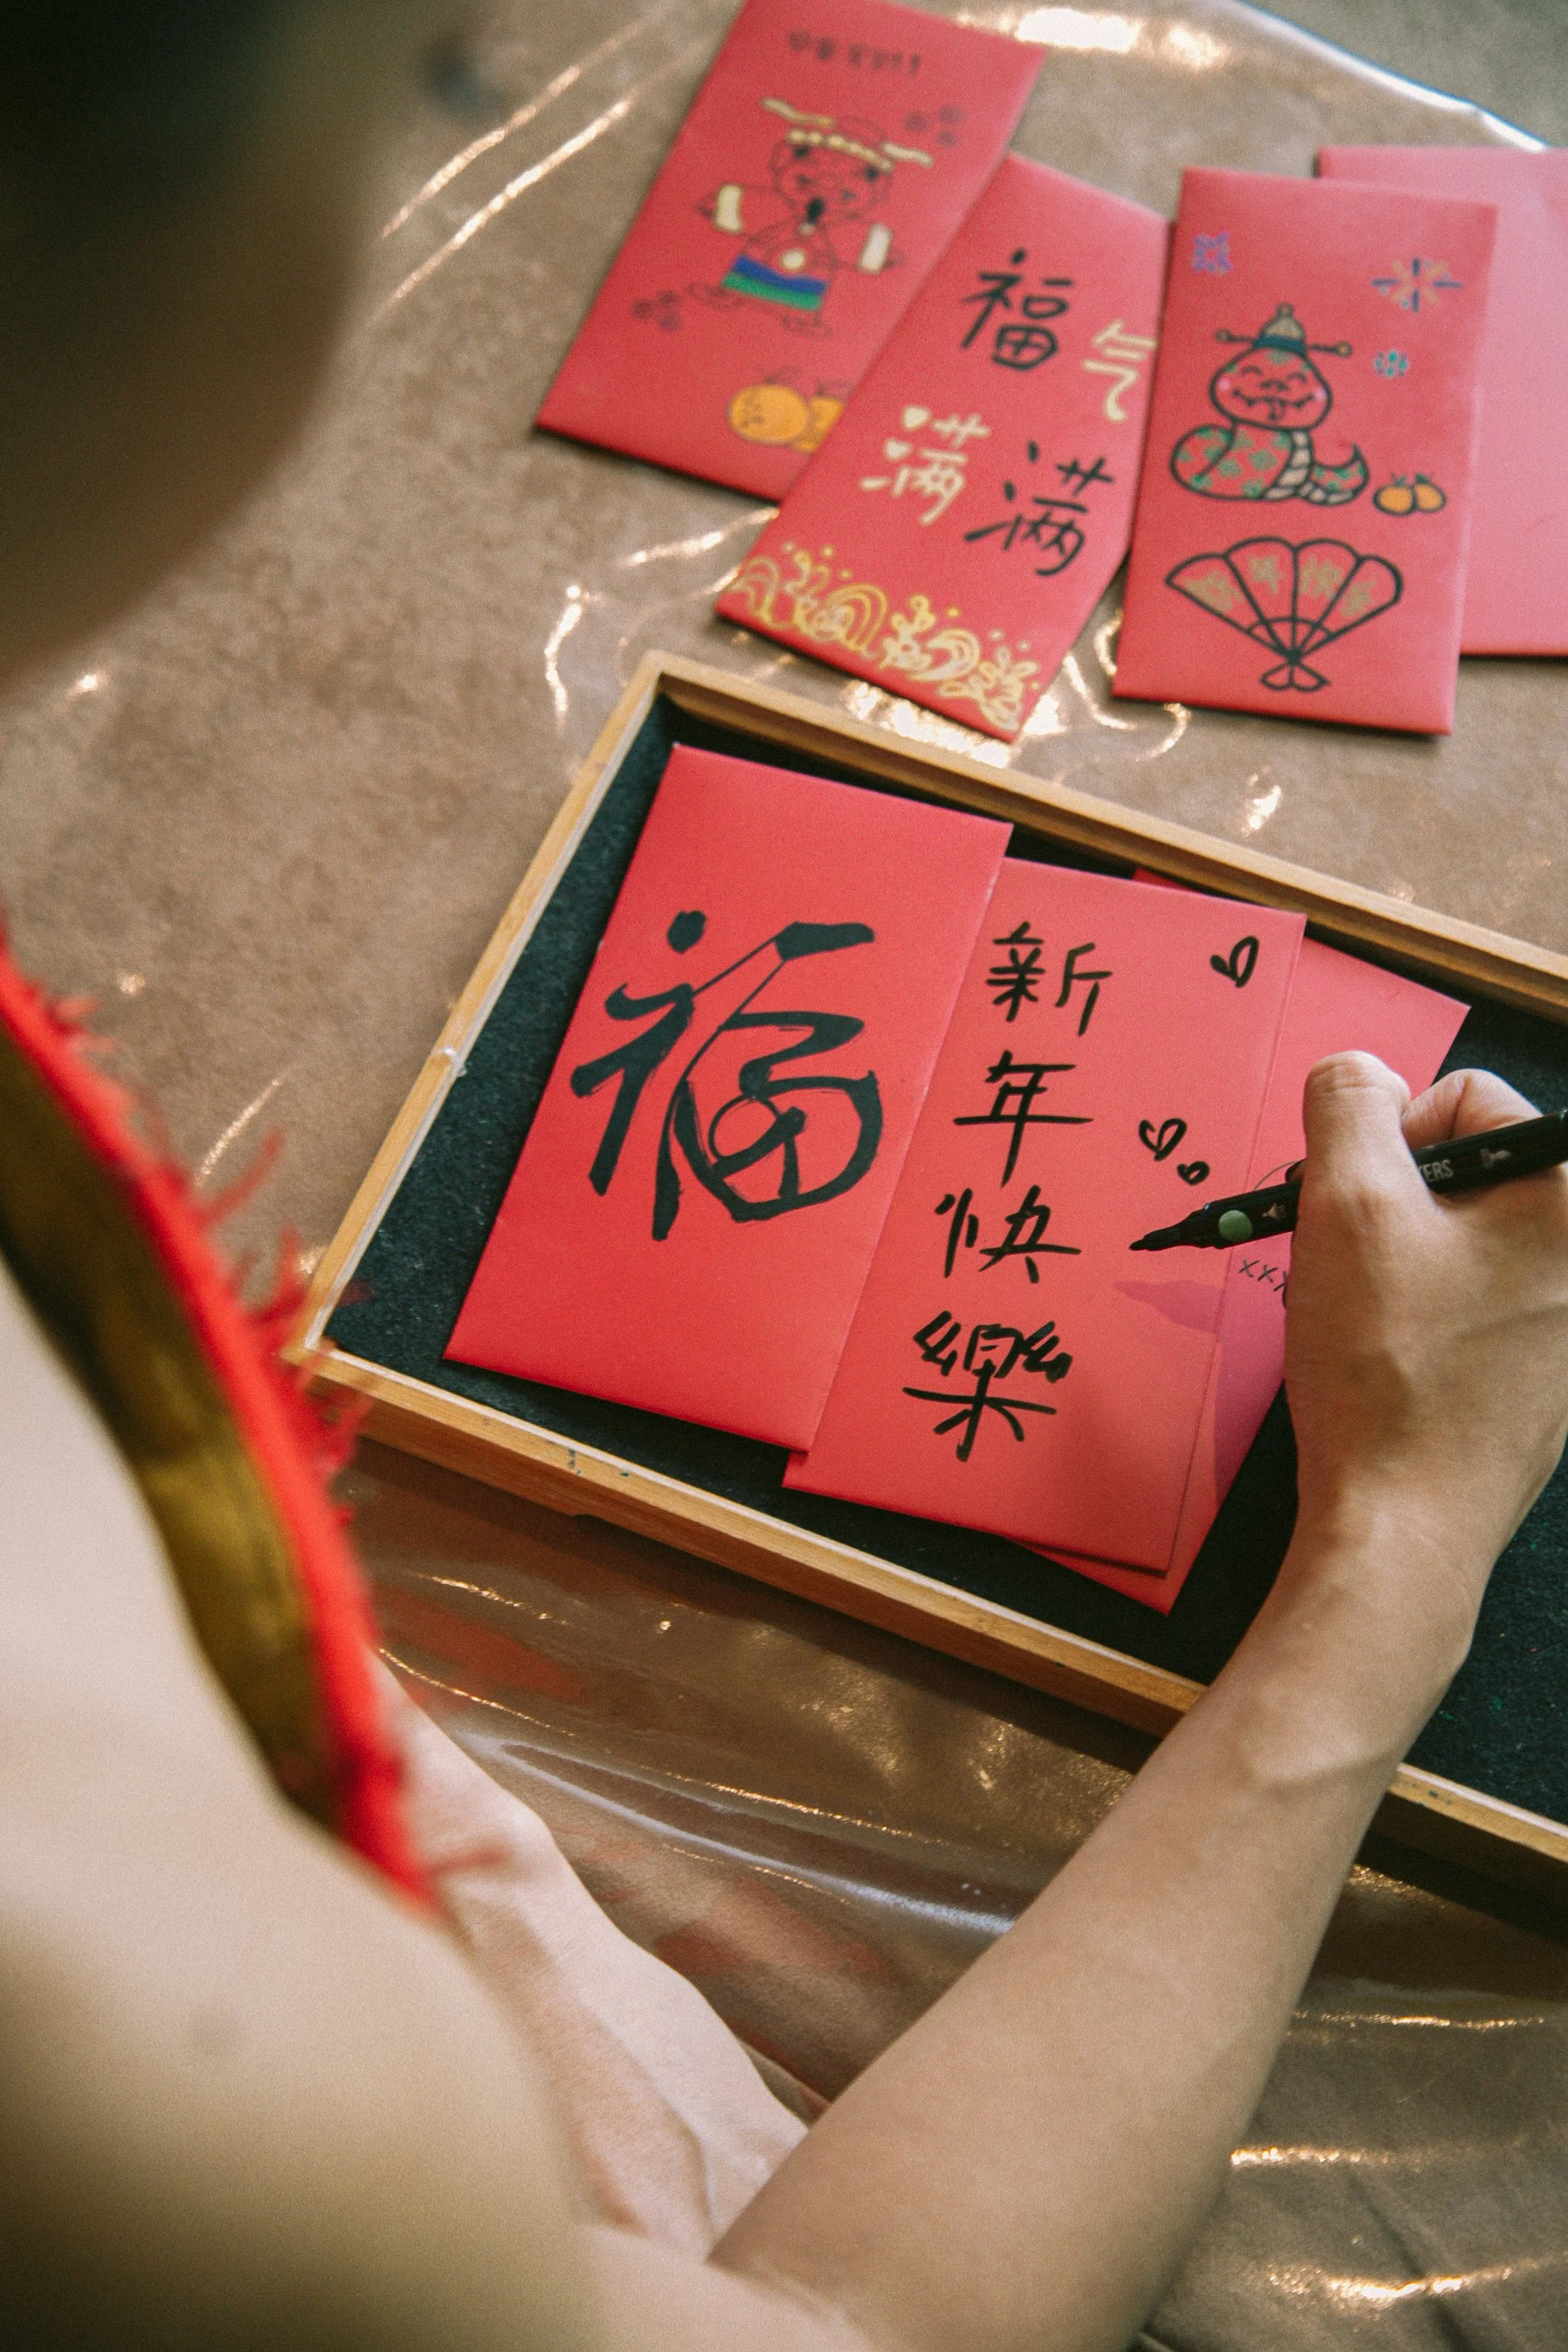 福气
满满
福
新
年
快
樂
xxx